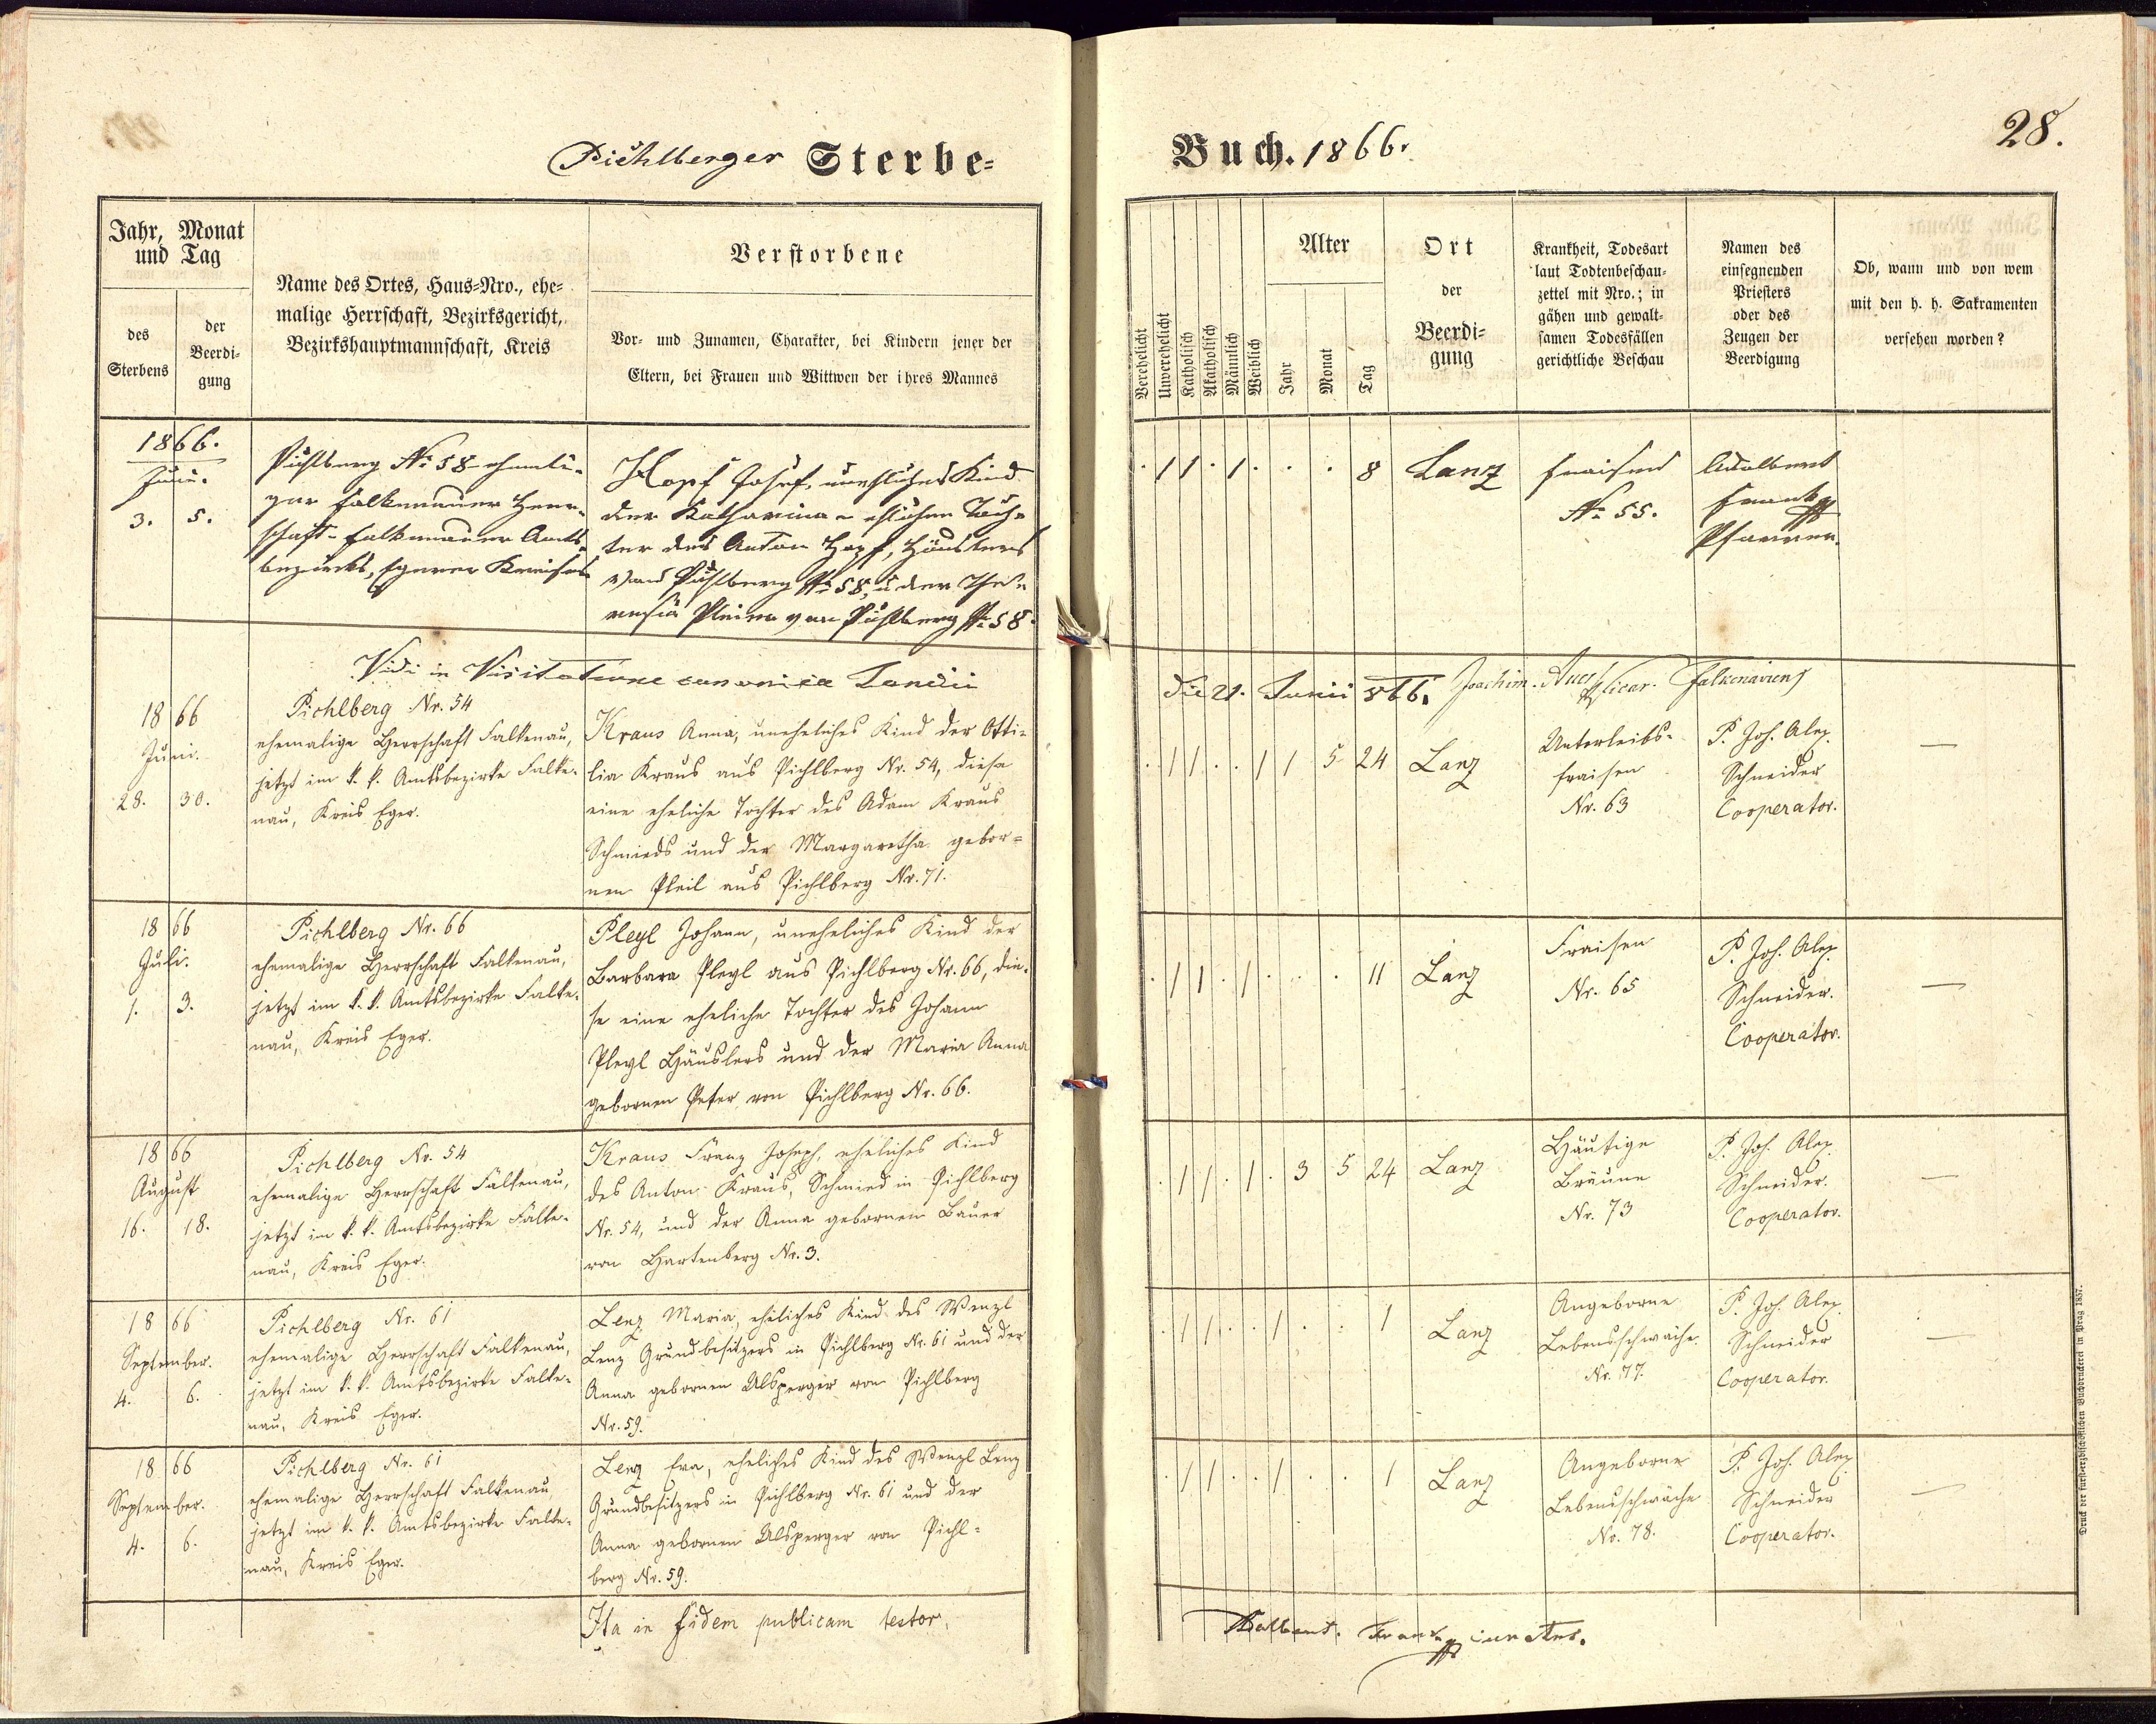 28.
Pichlberger Sterbe=
Buch. 1866.
Jahr, Monat
und Tag
des
Sterbens
der
Beerdi-
gung
Name des Ortes, Haus-Nro., ehe-
malige Herrschaft, Bezirksgericht,
Bezirkshauptmannschaft, Kreis
Verstorbene
Vor- und Zunamen, Charakter, bei Kindern jener der
Eltern, bei Frauen und Wittwen der ihres Mannes
Verehelicht
Unverehelicht
Katholisch
Akatholisch
Männlich
Weiblich
Alter
Jahr
Monat
Tag
Ort
der
Beerdi-
gung
Krankheit, Todesart
laut Todtenbeschau-
zettel mit Nro.; in
gähen und gewalt-
samen Todesfällen
gerichtliche Beschau
Namen des
einsegnenden
Priesters
oder des
Zeugen der
Beerdigung
Ob, wann und von wem
mit den h. h. Sakramenten
versehen worden?
1866.
Juni.
3. 5.
Pichlberg No 58 ehemali-
ger Falkenauer Herr-
schaft Falkenauer Amts-
bezirks, Egerer Kreises
Hopf Josef, uneheliches Kind
der Katharina ehlichen Toch-
ter des Anton Hopf, Häuslers
von Pichlberg No 58, u der The-
resia von Pichlberg No 58.
. 1 1 . 1 . . . 8
Lanz
Fraisen
No 55.
Adalbert
Frank
Pfarrer.
Vidi in Visitatione canonica Lanzii
die 21. Junii 866. Joachim Vicar. Falkenaviens
1866
Juni.
28. 30.
Pichlberg Nr. 54
ehemalige Herrschaft Falkenau,
jetzt im k. k. Amtsbezirke Falke-
nau, Kreis Eger.
Kraus Anna, uneheliches Kind der Otti-
lia Kraus aus Pichlberg Nr. 54, diese
eine eheliche Tochter des Adam Kraus
Schmieds und der Margaretha gebor-
nen Pleil aus Pichlberg Nr. 71.
. 1 1 . . 1 1 5 24
Lanz
Unterleibs-
fraisen
Nr. 63
P. Joh. Alex.
Schneider
Cooperator.
—
1866
Juli.
1. 3.
Pichlberg Nr. 66
ehemalige Herrschaft Falkenau,
jetzt im k. k. Amtsbezirke Falke-
nau, Kreis Eger.
Pleyl Johann, uneheliches Kind der
Barbara Pleyl aus Pichlberg Nr. 66, die-
se eine eheliche Tochter des Johann
Pleyl Häuslers und der Maria Anna
gebornen Peter von Pichlberg Nr. 66.
. 1 1 . 1 . . . 11
Lanz
Fraisen
Nr. 65
P. Joh. Alex.
Schneider.
Cooperator.
—
1866
August
16. 18.
Pichlberg Nr. 54
ehemalige Herrschaft Falkenau,
jetzt im k. k. Amtsbezirke Falke-
nau, Kreis Eger.
Kraus Franz Joseph, eheliches Kind
des Anton Kraus, Schmied in Pichlberg
Nr. 54, und der Anna gebornen Bauer
von Hartenberg Nr. 3.
. 1 1 . 1 . 3 5 24
Lanz
Häutige
Bräune
Nr. 73
P. Joh. Alex.
Schneider.
Cooperator.
—
1866
September.
4. 6.
Pichlberg Nr. 61
ehemalige Herrschaft Falkenau,
jetzt im k. k. Amtsbezirke Falke-
nau, Kreis Eger.
Lenz Maria, eheliches Kind des Wenzl
Lenz Grundbesitzers in Pichlberg Nr. 61 und der
Anna gebornen Ulsperger von Pichlberg
Nr. 59.
. 1 1 . . 1 . . 1
Lanz
Angeborne
Lebensschwäche.
Nr. 77.
P. Joh. Alex.
Schneider
Cooperator.
—
1866
September.
4. 6.
Pichlberg Nr. 61
ehemalige Herrschaft Falkenau
jetzt im k. k. Amtsbezirke Falke-
nau, Kreis Eger.
Lenz Eva, eheliches Kind des Wenzl Lenz
Grundbesitzers in Pichlberg Nr. 61 und der
Anna gebornen Ulsperger von Pichl-
berg Nr. 59.
. 1 1 . . 1 . . 1
Lanz
Angeborne
Lebensschwäche
Nr. 78.
P. Joh. Alex.
Schneider
Cooperator.
—
Ita in fidem publicam testor.
Adalbert Frank curatus.
Druck der fürsterzbischöflichen Buchdruckerei in Prag 1857.